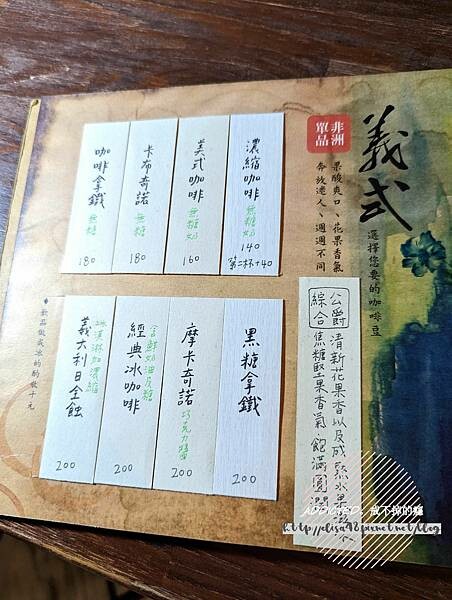 義式
選擇您要的咖啡豆
非洲
單品
果酸爽口、花果香氣
奔放迷人、週週不同
公爵
綜合
清新花果香以及成熟水果
焦糖堅果香氣.飽滿圓潤
濃縮咖啡 無糖奶
140
第二杯+40
美式咖啡 無糖奶
160
卡布奇諾 無糖
180
咖啡拿鐵 無糖
180
黑糖拿鐵
200
摩卡奇諾 巧克力醬
200
經典冰咖啡 含鮮奶油及糖
200
義大利日全蝕 冰淇淋加濃縮
200
◆飲品做成冰的酌收十元
ADDICTED．戒不掉的癮
http://elisa98.pixnet.net/blog